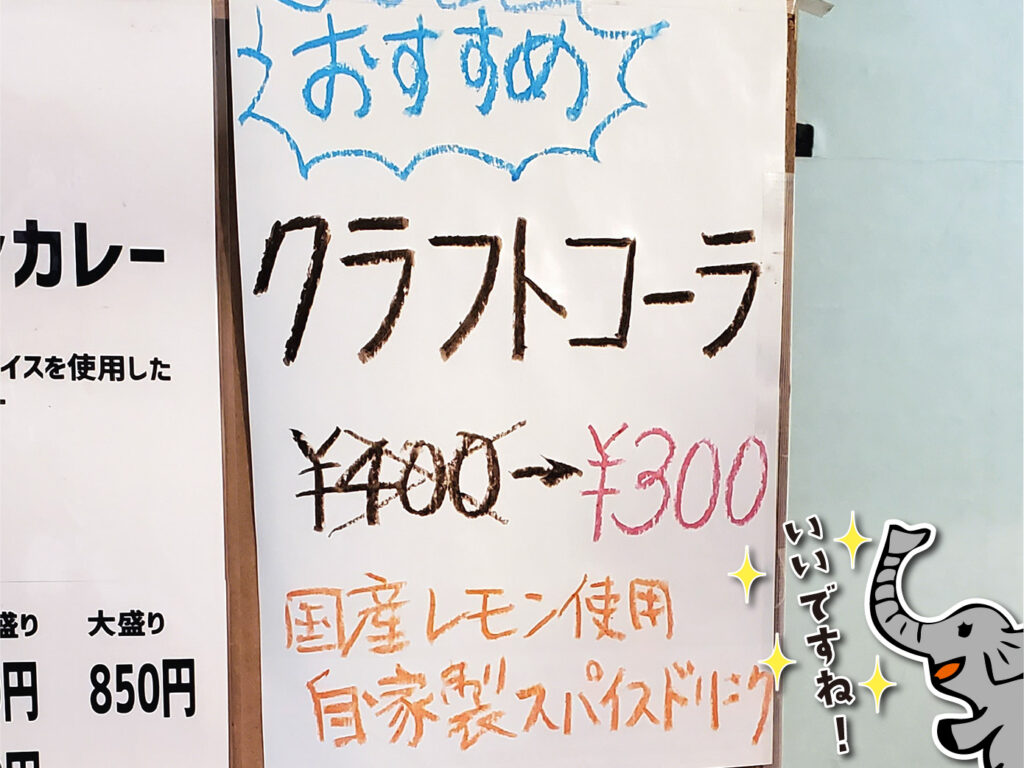 おすすめ
クラフトコーラ
¥400→¥300
国産レモン使用
自家製スパイスドリンク
カレー
イスを使用した
盛り 大盛り
円 850円
円
いいですね!